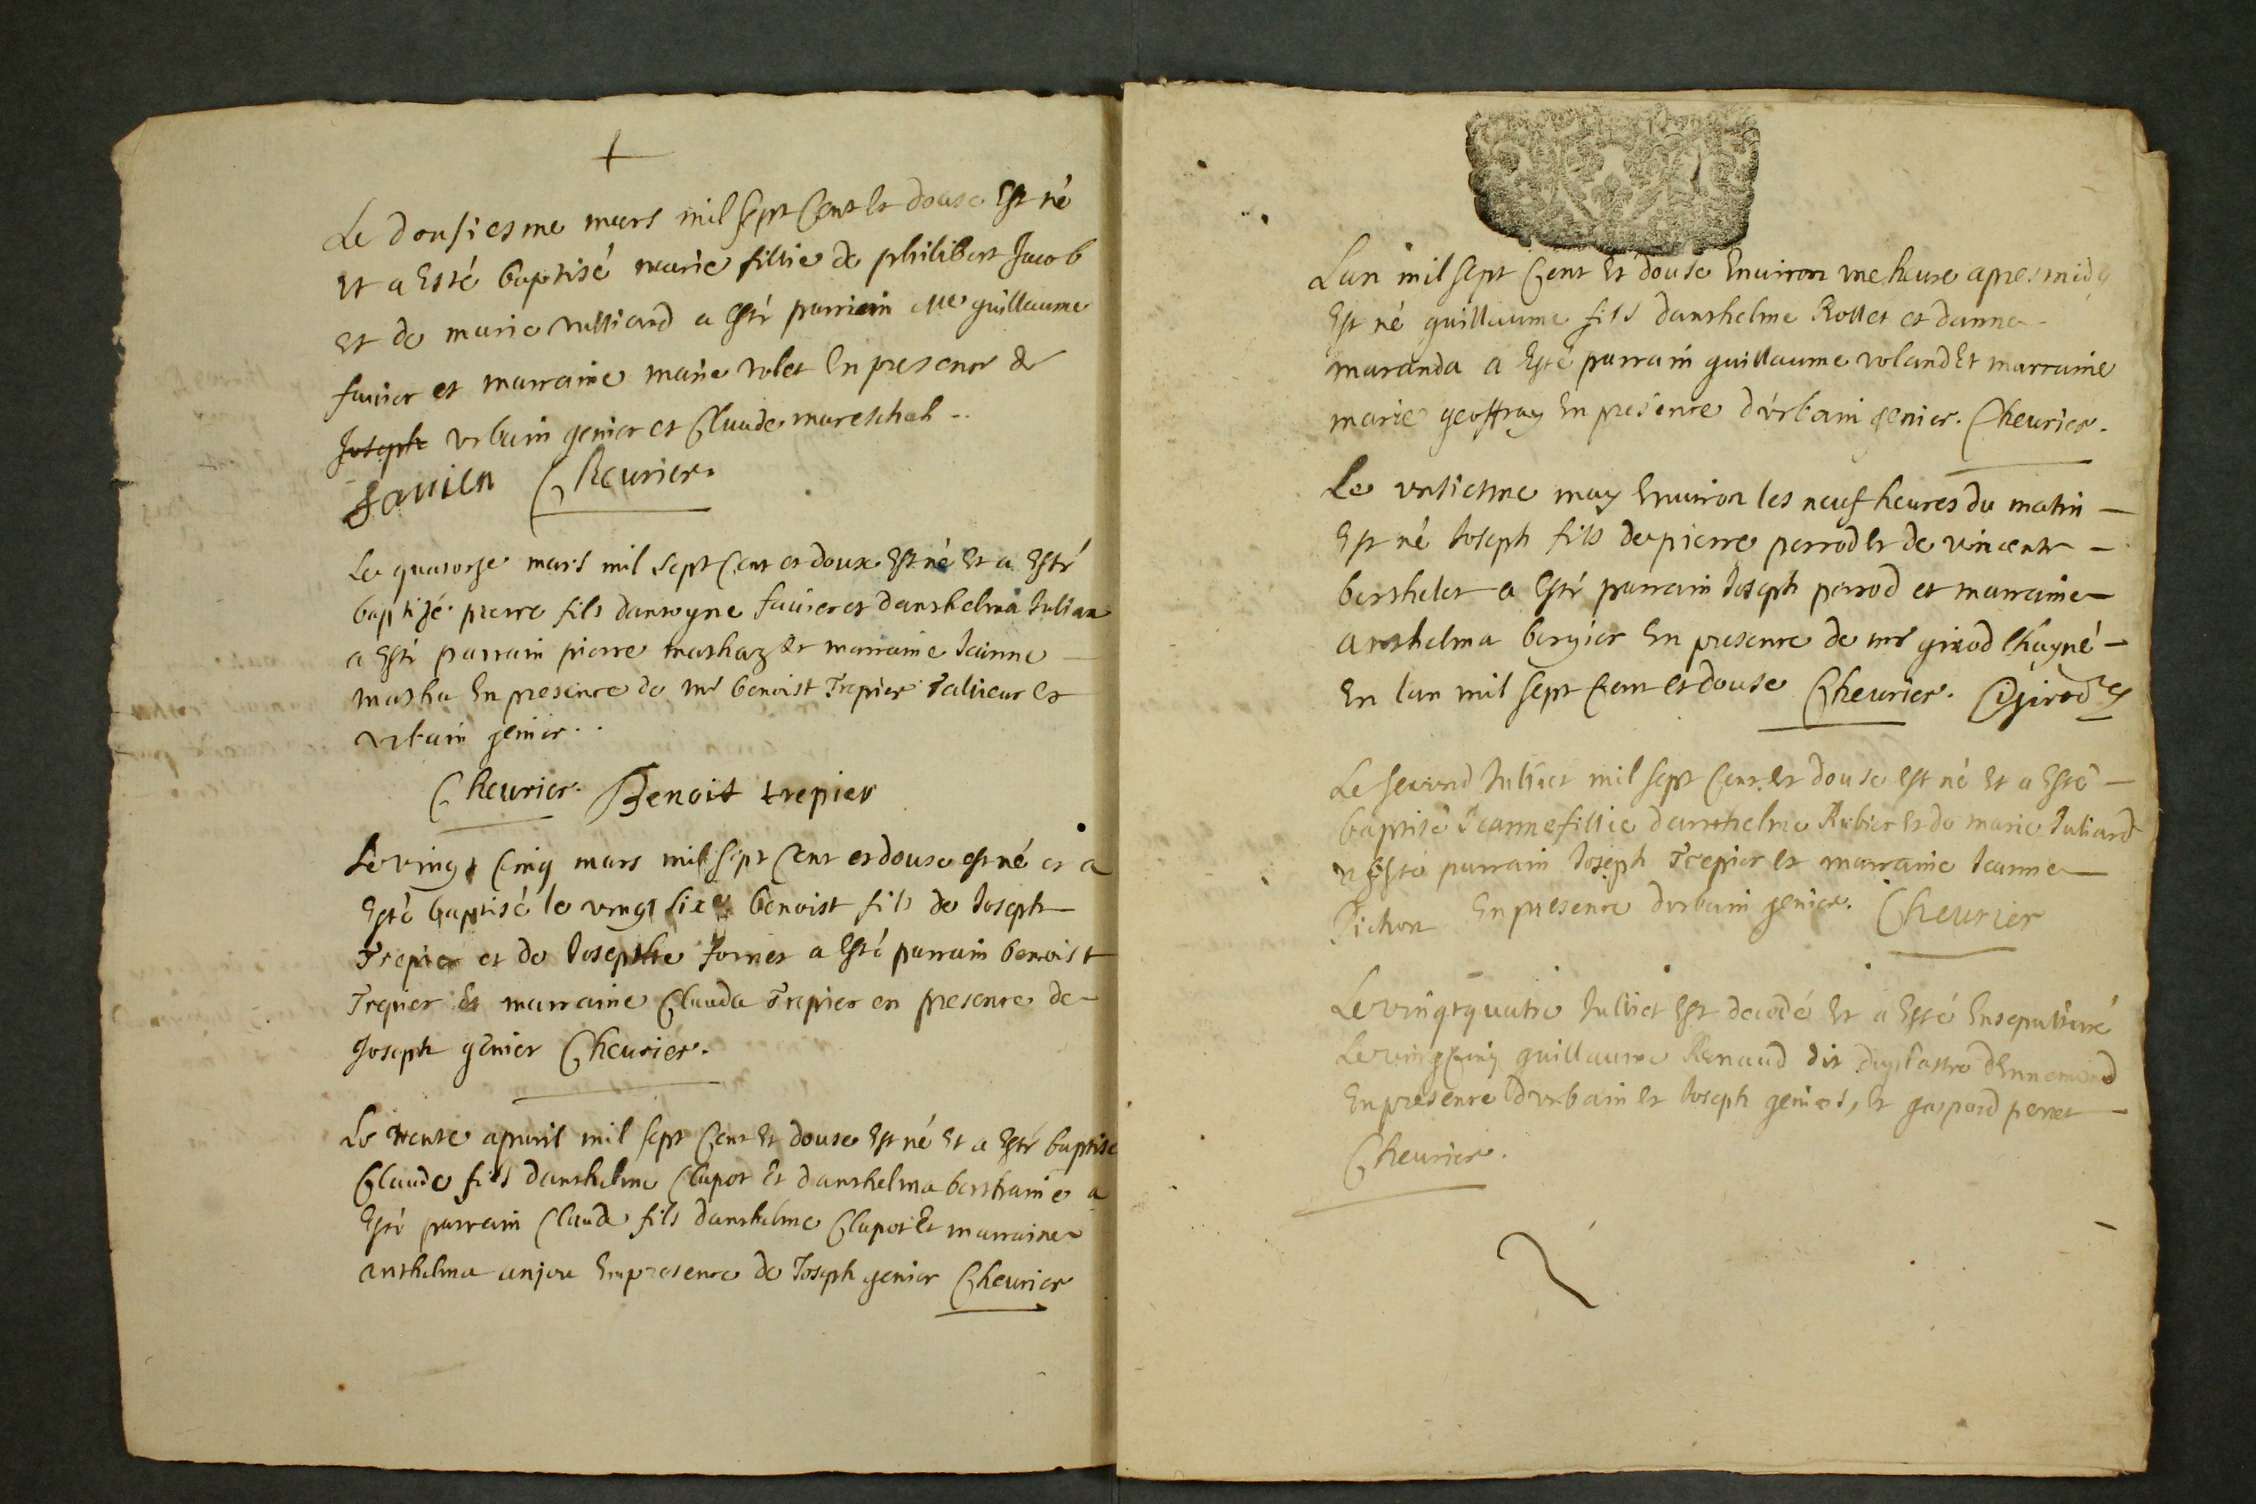 Le dousiesme mars mil sept Cent et douse Est né
et a Esté baptisé marie fillie de philibert Jacob
et de marie rulliard a Esté parrain Me guillaume
fauier et marraine marie rolet En presence de
Joseph urbain genier et Claude mareschal
fauier Cheurier.
Le quatorze mars mil sept Cent et douze Est né Et a Esté
baptizé pierre fils dantoyne fauier et danthelma Julian
a Esté parrain pierre mathaz Et marraine Jeanne
matha En presence de mr benoist Trepier et
urbain genier
Cheurier. Benoit trepier
Le vingt Cinq mars mil sept Cent et douse est né et a
Esté baptisé le vingt sixe benoist fils de Joseph
Trepier et de Josephte fornet a Esté parrain benoist
Trepier Et marraine Clauda Trepier en presence de
Joseph genier Cheurier.
Le trente apuril mil sept Cent Et douse Est né Et a Esté baptisé
Claude fils danthelme Clapot Et danthelma berthaine a
Esté parrain Claude fils danthelme Clapot Et marraine
anthelma anjou En presence de Joseph genier Cheurier
Lan mil sept Cent Et douse Enuiron une heure apres midy
Est né guillaume fils danthelme Rollet et danna
maranda a Esté parrain guillaume voland Et marraine
marie geoffray En presence durbain genier. Cheurier.
Le unsiesme may Enuiron les neuf heures du matin
Est né Joseph fils de pierre perrod Et de vincente
berthelet a Esté parrain Joseph perrod et marraine
anthelma bergier En presence de mr girod Chayné
En lan mil sept Cent et douse Cheurier. Girod
Le second Julliet mil sept Cent et douse est né et a Esté
baptisé Jeanne fillie danthelme Rubier et de marie Juliard
a Esté parrain Joseph Trepier Et marraine Jeanne
Pichon En presence durbain genier. Cheurier
Le vingt quatre Julliet Est decedé Et a Esté Ensepulturé
Le vingt Cinq guillaume Renaud dit dennemond
En presence durbain Et Joseph geniers, Et gaspard perret
Cheurier.